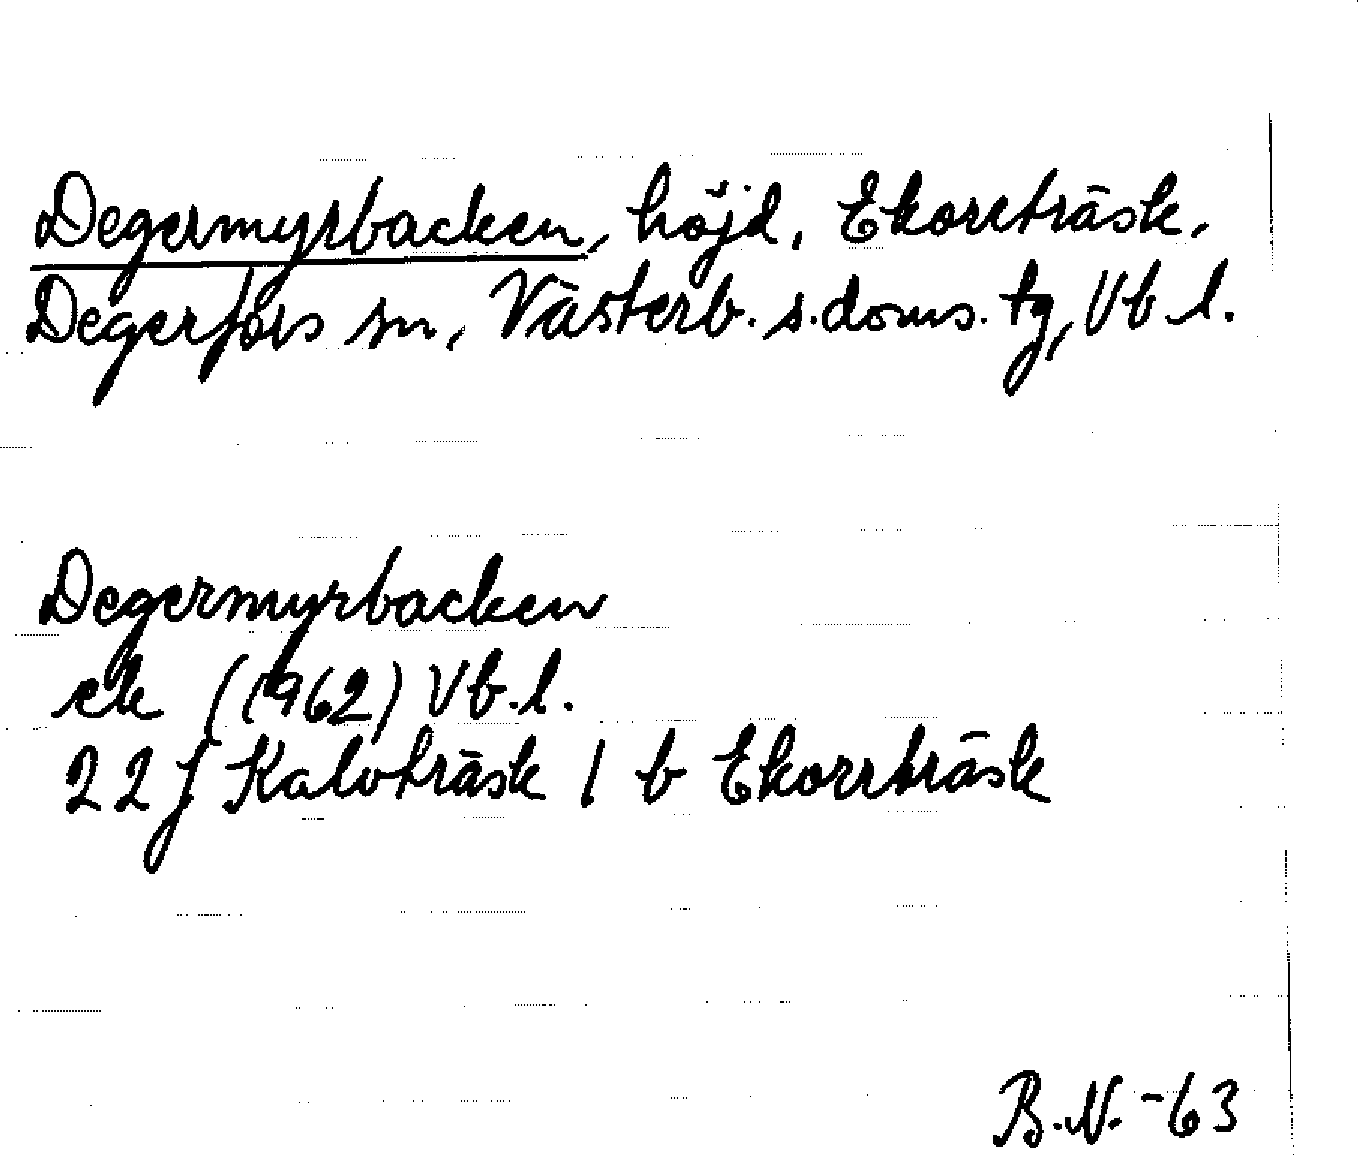 Degermyrbacken, höjd, Ekorrträsk,
Degerfors sn, Västerb. s. doms. tg, Vb. l.
Degermyrbacken
ek (1962) Vb. l.
22 J Kalvträsk 1 b Ekorrträsk
B.N. -63